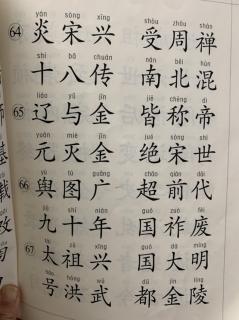 yán sòng xīng shòu zhōu shàn
64 炎宋兴 受周禅
shí bā chuán nán běi hùn
十八传 南北混
liáo yǔ jīn jiē chēng dì
65 辽与金 皆称帝
yuán miè jīn jué sòng shì
元灭金 绝宋世
yú tú guǎng chāo qián dài
66 舆图广 超前代
jiǔ shí nián guó zuò fèi
九十年 国祚废
tài zǔ xīng guó dà míng
67 太祖兴 国大明
hào hóng wǔ dū jīn líng
号洪武 都金陵